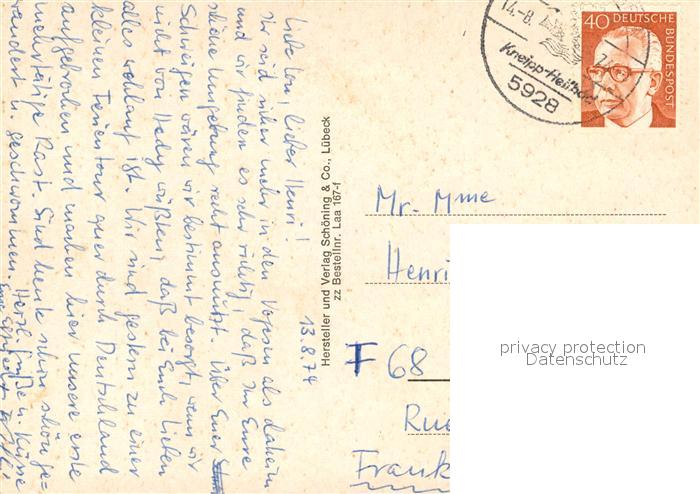 Liebe Leni, lieber Henri!
Ihr seid sicher mehr in den Vogesen als daheim
und wir finden es sehr richtig, daß Ihr Eure
schöne Umgebung recht ausnützt. Über Euer
Schweigen wären wir bestimmt besorgt, wenn wir
nicht von Hedy wüßten, daß bei Euch Lieben
alles wohlauf ist. Wir sind gestern zu einer
kleinen Ferientour quer durch Deutschland
aufgebrochen und machen hier unsere erste
mehrtätige Rast. Sind heute schon schön ge=
wandert u. geschwommen.
Herzl. Grüße u. Küsse
13.8.74
Hersteller und Verlag Schöning & Co., Lübeck
zz Bestellnr. Laa 167-f
14.-8.
Kneipp-Heilbad
5928
40 DEUTSCHE
BUNDESPOST
Mr. Mme
Henri
F 68
Rue
Frank
privacy protection
Datenschutz